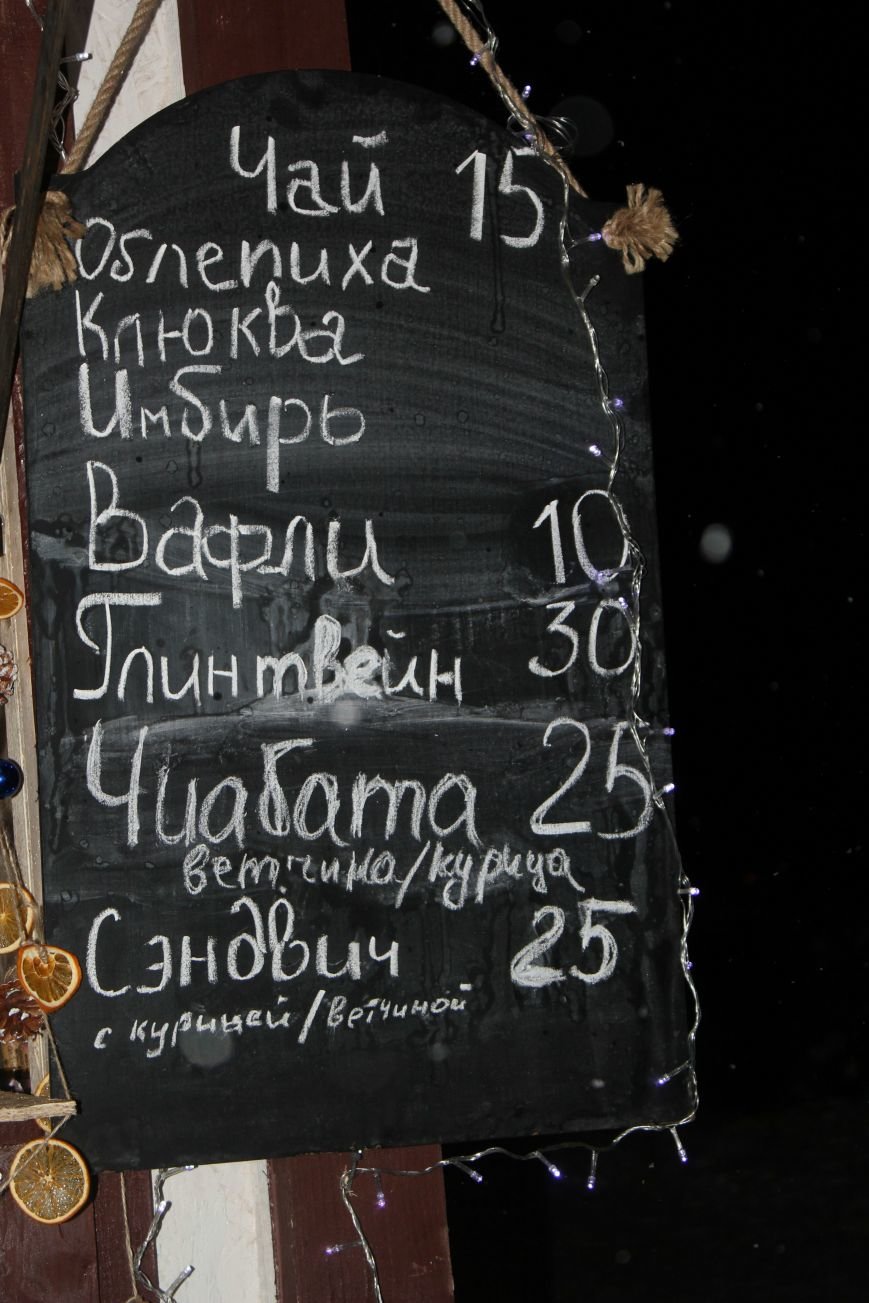 Чай 15
Облепиха
Клюква
Имбирь
Вафли 10
Глинтвейн 30
Чиабата 25
ветчина/курица
Сэндвич 25
с курицей/ветчиной